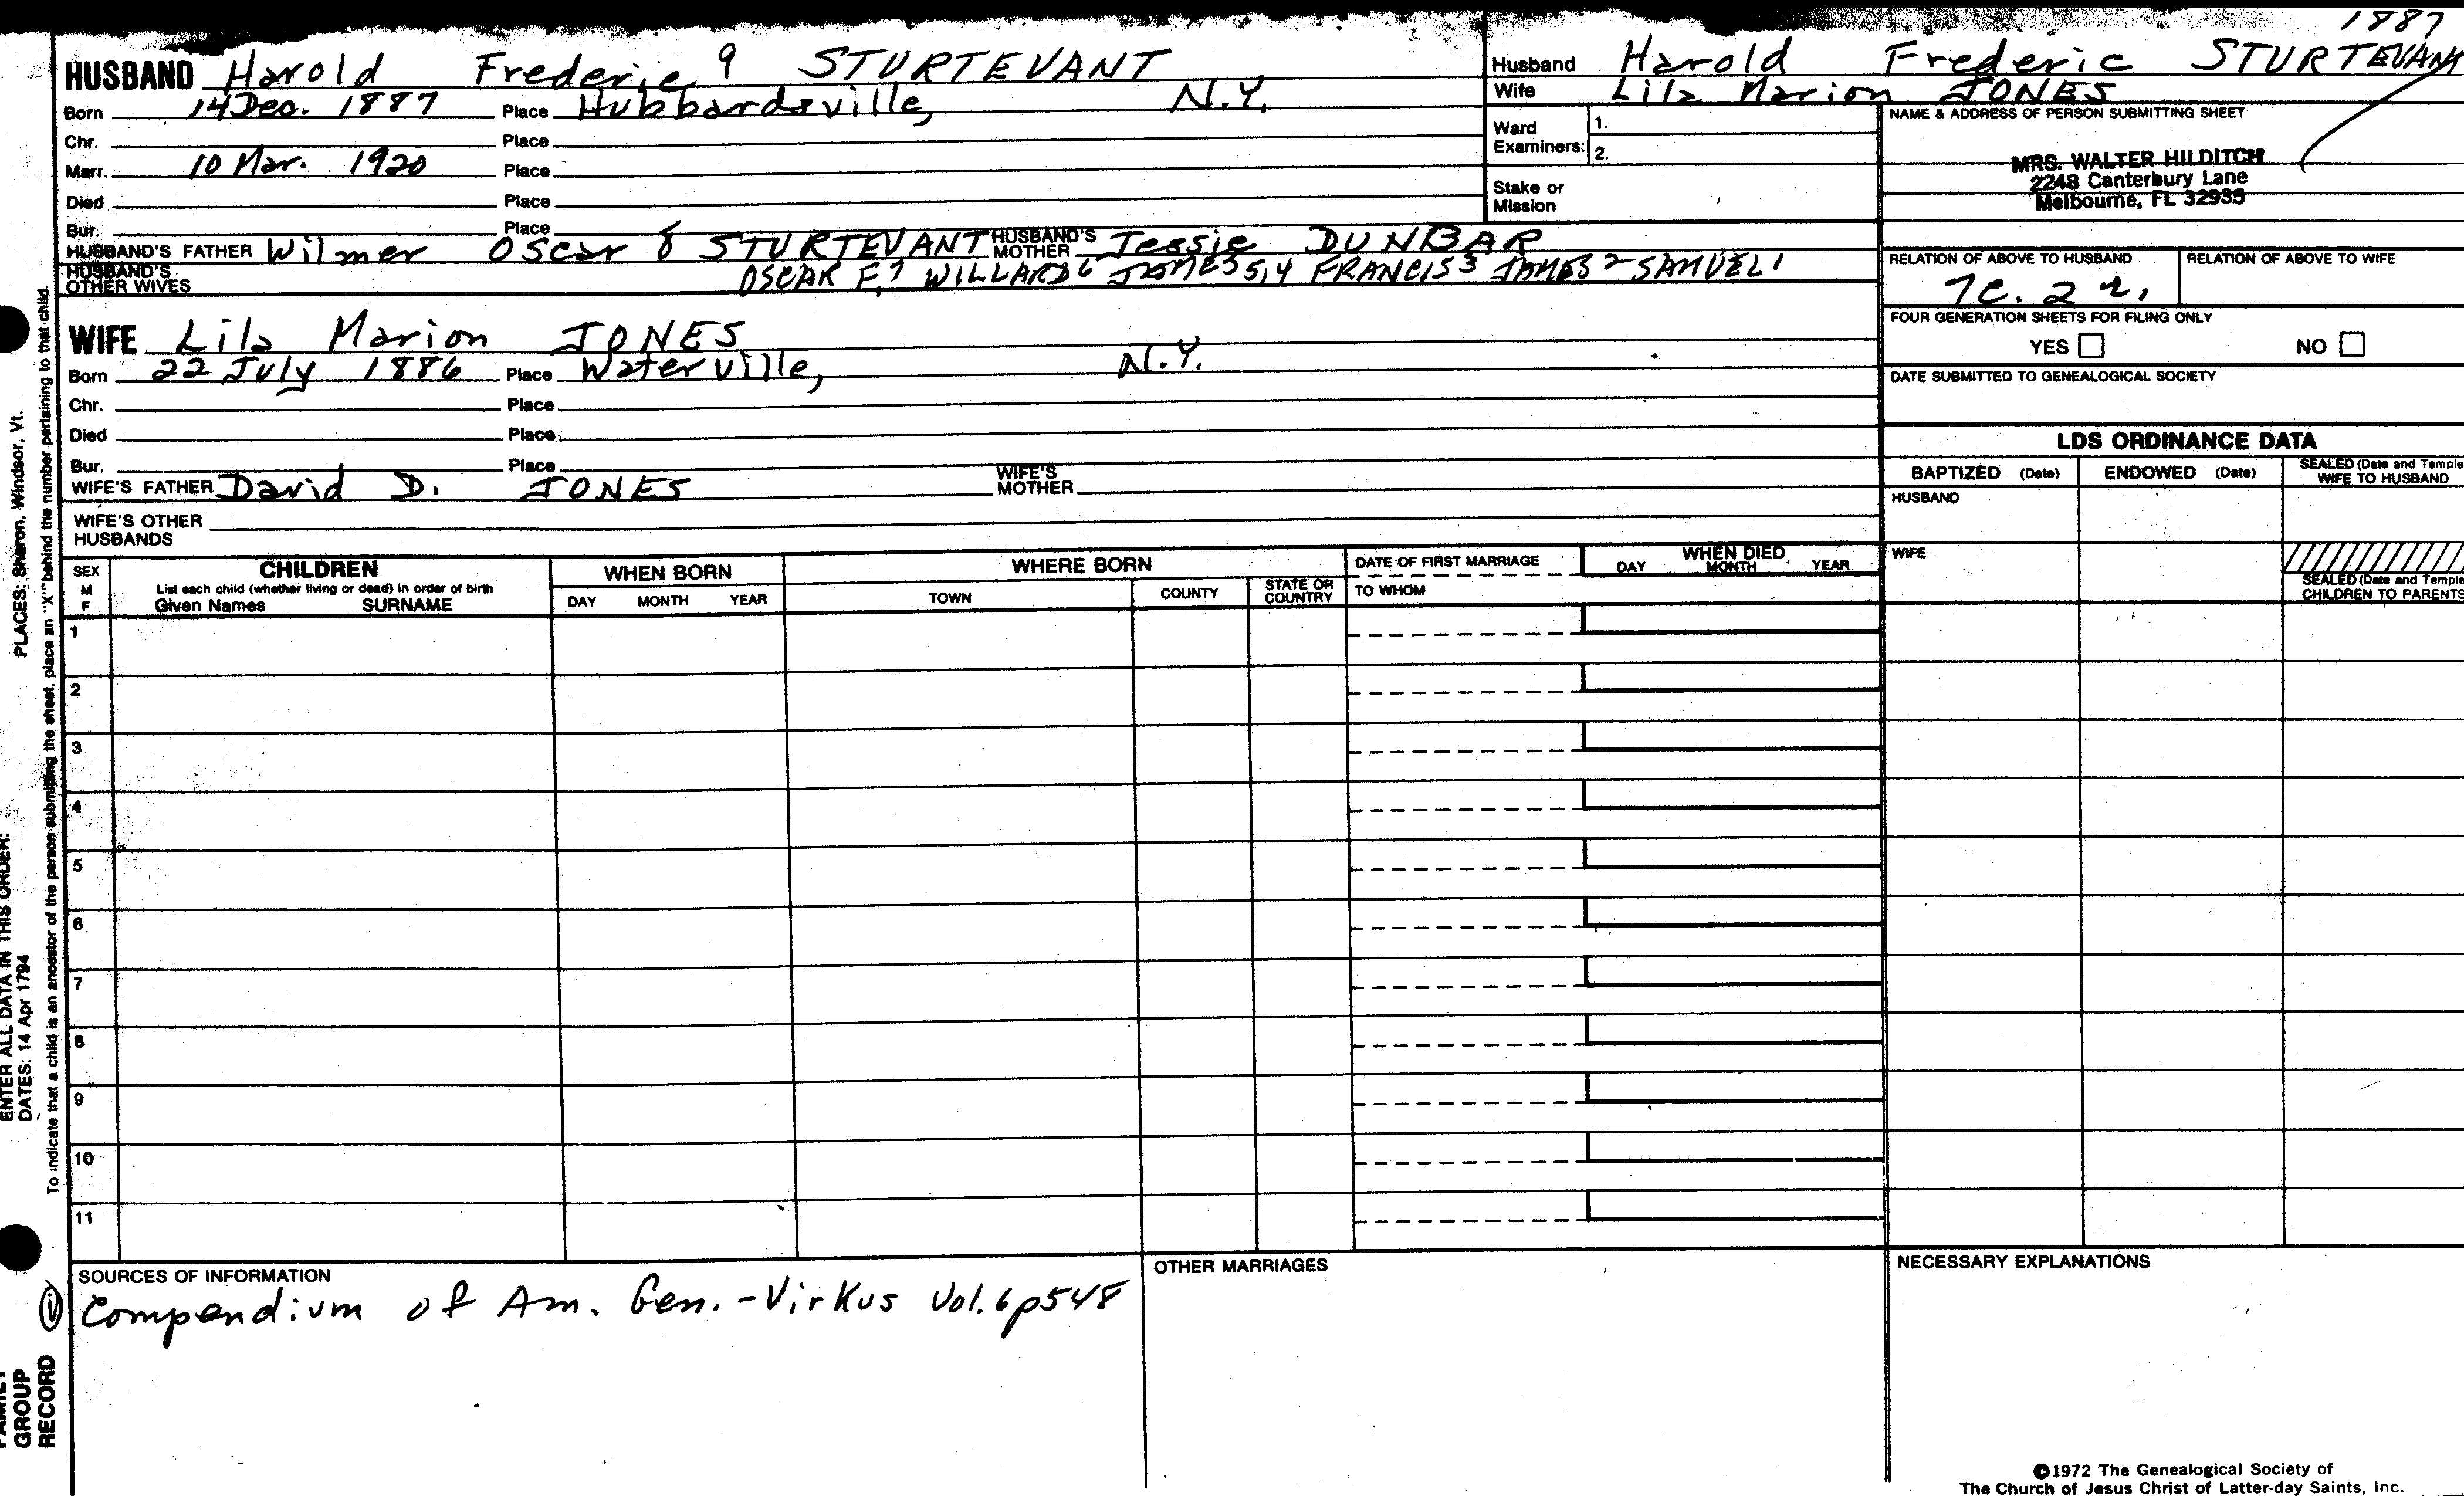 1887
HUSBAND Harold Frederic 9 STURTEVANT
Born 14 Dec. 1887 Place Hubbardsville, N.Y.
Chr. Place
Marr. 10 Mar. 1920 Place
Died Place
Bur. Place
HUSBAND'S FATHER Wilmer Oscar 8 STURTEVANT HUSBAND'S MOTHER Jessie DUNBAR
HUSBAND'S OTHER WIVES OSCAR F,7 WILLARD6 JAMES5,4 FRANCIS3 JAMES2 SAMUEL1
WIFE Lila Marion JONES
Born 22 July 1886 Place Waterville, N.Y.
Chr. Place
Died Place
Bur. Place
WIFE'S FATHER David D. JONES WIFE'S MOTHER
WIFE'S OTHER HUSBANDS
Husband Harold Frederic STURTEVANT
Wife Lila Marion JONES
Ward Examiners: 1.
2.
Stake or Mission
NAME & ADDRESS OF PERSON SUBMITTING SHEET
MRS. WALTER HILDITCH
2248 Canterbury Lane
Melbourne, FL 32935
RELATION OF ABOVE TO HUSBAND RELATION OF ABOVE TO WIFE
7c. 2 r.
FOUR GENERATION SHEETS FOR FILING ONLY
YES NO
DATE SUBMITTED TO GENEALOGICAL SOCIETY
LDS ORDINANCE DATA
BAPTIZED (Date) ENDOWED (Date) SEALED (Date and Temple) WIFE TO HUSBAND
HUSBAND
WIFE
SEALED (Date and Temple) CHILDREN TO PARENTS
SEX M F CHILDREN WHEN BORN WHERE BORN DATE OF FIRST MARRIAGE WHEN DIED
List each child (whether living or dead) in order of birth
Given Names SURNAME DAY MONTH YEAR TOWN COUNTY STATE OR COUNTRY TO WHOM DAY MONTH YEAR
1
2
3
4
5
6
7
8
9
10
11
SOURCES OF INFORMATION
Compendium of Am. Gen. - Virkus Vol. 6 p548
OTHER MARRIAGES
NECESSARY EXPLANATIONS
©1972 The Genealogical Society of
The Church of Jesus Christ of Latter-day Saints, Inc.
PLACES: Sharon, Windsor, Vt.
ENTER ALL DATA IN THIS ORDER:
DATES: 14 Apr 1794
To indicate that a child is an ancestor of the person submitting the sheet, place an "X" behind the number pertaining to that child.
FAMILY
GROUP
RECORD